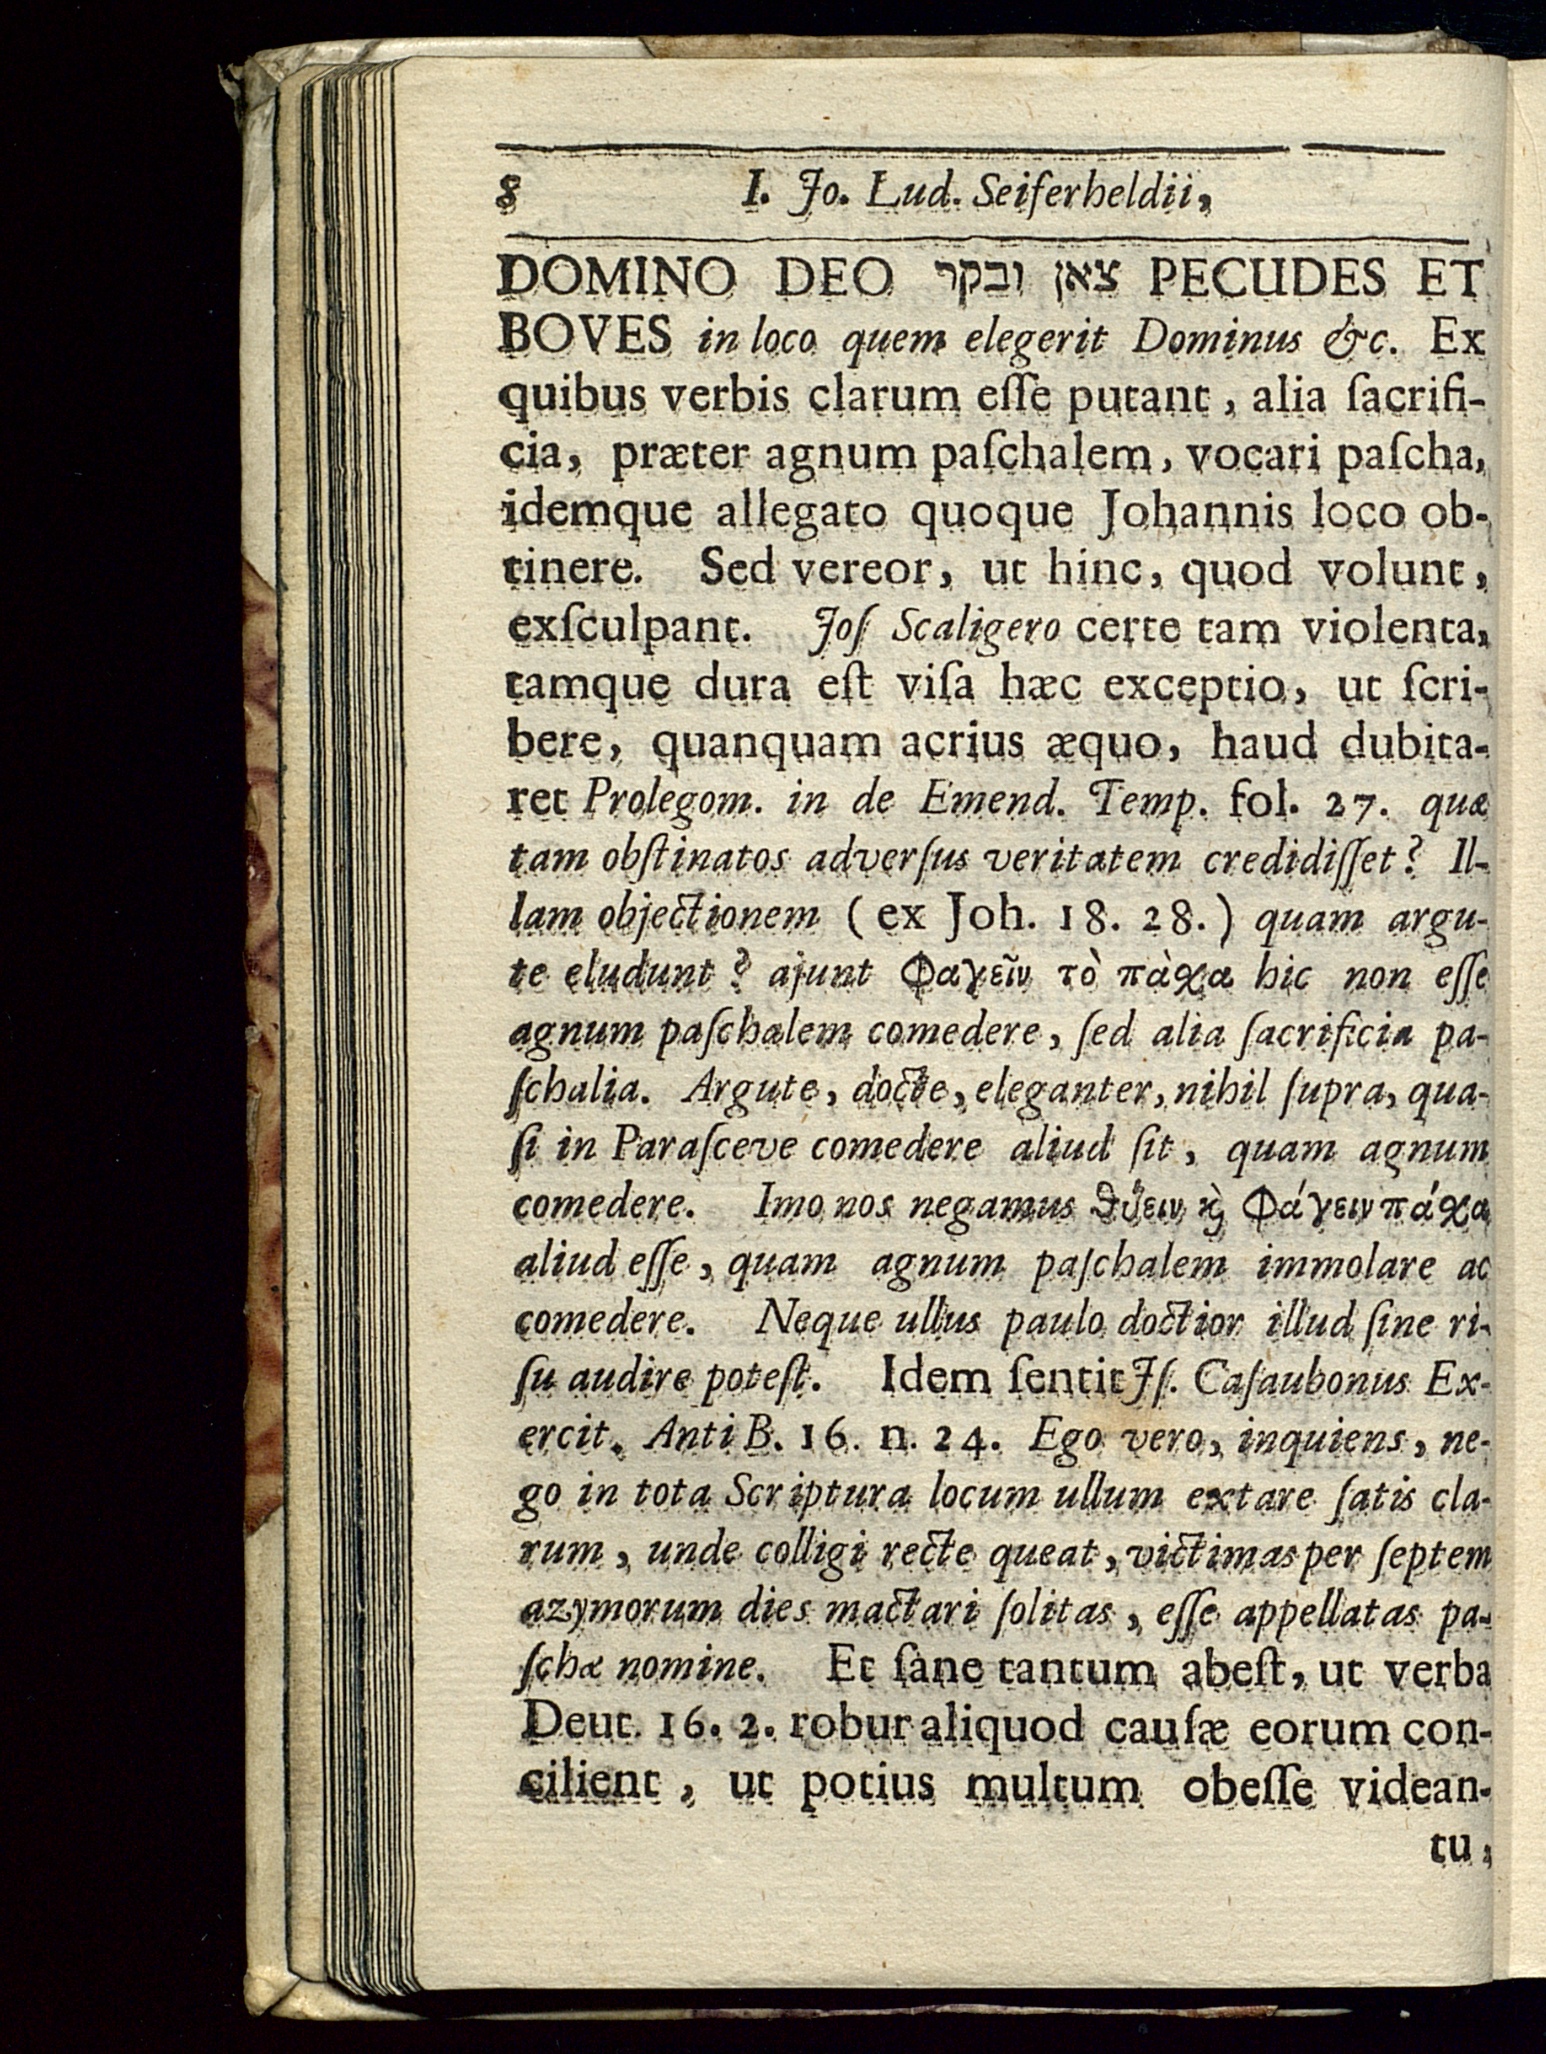 8 I. Jo. Lud. Seiferheldii,
DOMINO DEO צאן ובקר PECUDES ET
BOVES in loco quem elegerit Dominus &c. Ex
quibus verbis clarum eſſe putant, alia ſacrifi-
cia, præter agnum paſchalem, vocari paſcha,
idemque allegato quoque Johannis loco ob-
tinere. Sed vereor, ut hinc, quod volunt,
exſculpant. Joſ Scaligero certe tam violenta,
tamque dura eſt viſa hæc exceptio, ut ſcri-
bere, quanquam acrius æquo, haud dubita-
ret Prolegom. in de Emend. Temp. fol. 27. quæ
tam obſtinatos adverſus veritatem credidiſſet? Il-
lam objectionem (ex Joh. 18. 28.) quam argu-
te eludunt? ajunt Φαγεῖν τὸ πὰχα hic non eſſe
agnum paſchalem comedere, ſed alia ſacrificia pa-
ſchalia. Argute, docte, eleganter, nihil ſupra, qua-
ſi in Paraſceve comedere aliud ſit, quam agnum
comedere. Imo nos negamus ϑύειν ϗ Φάγειν πάχα
aliud eſſe, quam agnum paſchalem immolare ac
comedere. Neque ullus paulo doctior illud ſine ri-
ſu audire poteſt. Idem ſentit Jſ. Caſaubonus Ex-
ercit. Anti B. 16. n. 24. Ego vero, inquiens, ne-
go in tota Scriptura locum ullum extare ſatis cla-
rum, unde colligi recte queat, victimas per ſeptem
azymorum dies mactari ſolitas, eſſe appellatas pa-
ſchæ nomine. Et ſane tantum abeſt, ut verba
Deut. 16. 2. robur aliquod cauſæ eorum con-
cilient, ut potius multum obeſſe videan-
tu,